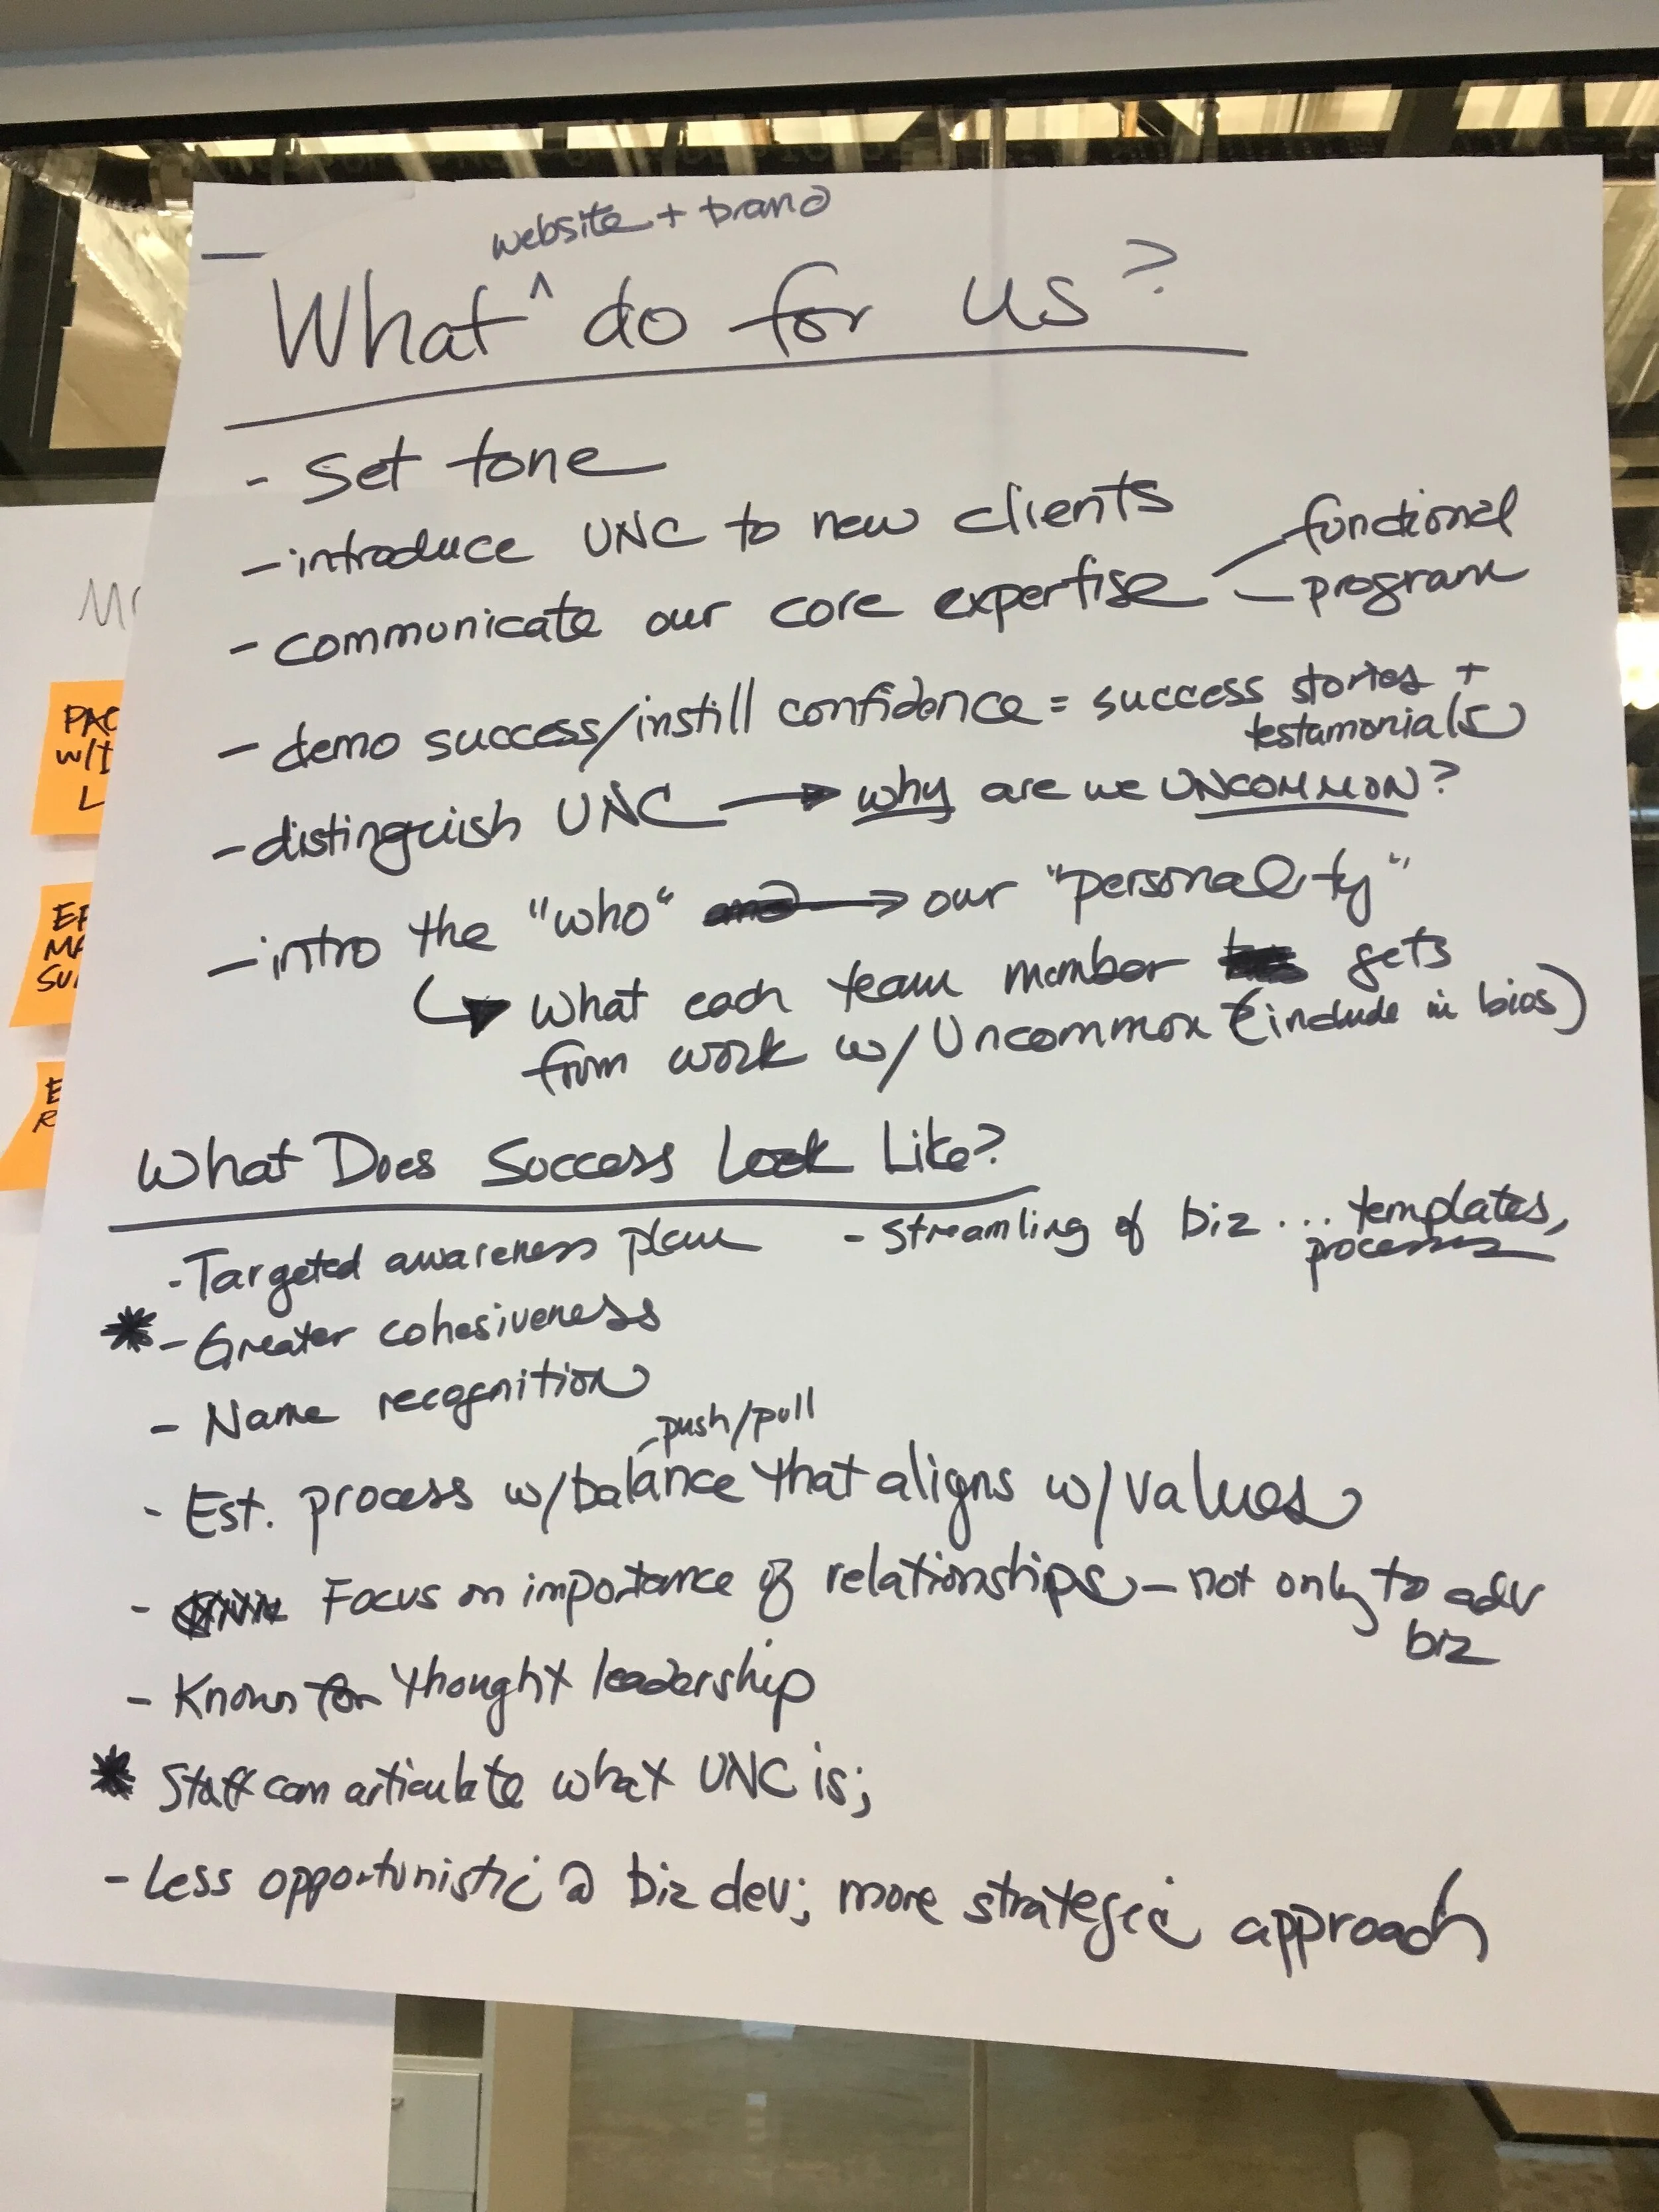 website + brand
What ^ do for us?
- set tone
- introduce UNC to new clients
- communicate our core expertise functional
- program
- demo success/instill confidence = success stories +
testamonials
- distinguish UNC → why are we UNCOMMON?
- intro the "who" → our "personality"
↳ What each team member gets
from work w/ Uncommon (include in bios)
What Does Success Look Like?
- Targeted awareness plan - streamling of biz ... templates,
processes
* - Greater cohesiveness
- Name recognition
push/pull
- Est. process w/ balance that aligns w/ values
- Focus on importance of relationships - not only to adv
biz
- Known for thought leadership
* Staff can articulate what UNC is;
- Less opportunistic @ biz dev; more strategic approach
W/I
L